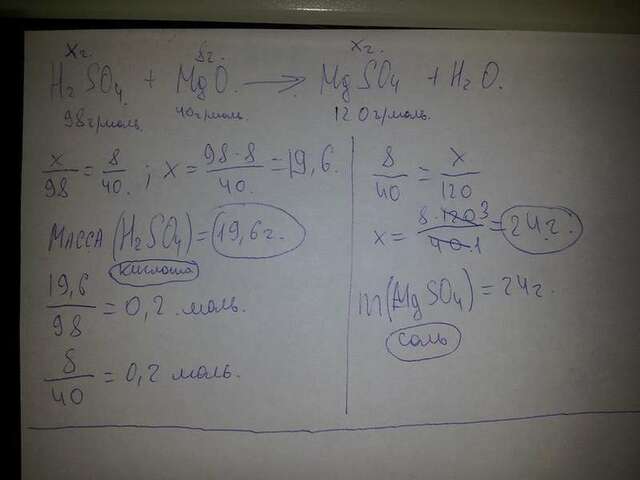 xг. 8г. xг.
H₂SO₄ + MgO. → MgSO₄ + H₂O.
98г/моль. 40г/моль. 120г/моль.
x/98 = 8/40. ; x = 98·8/40. = 19,6.
Масса (H₂SO₄) = 19,6г.
кислота
19,6/98 = 0,2 моль.
8/40 = 0,2 моль.
8/40 = x/120
x = 8·120 3/40.1 = 24г.
m(MgSO₄) = 24г.
соль